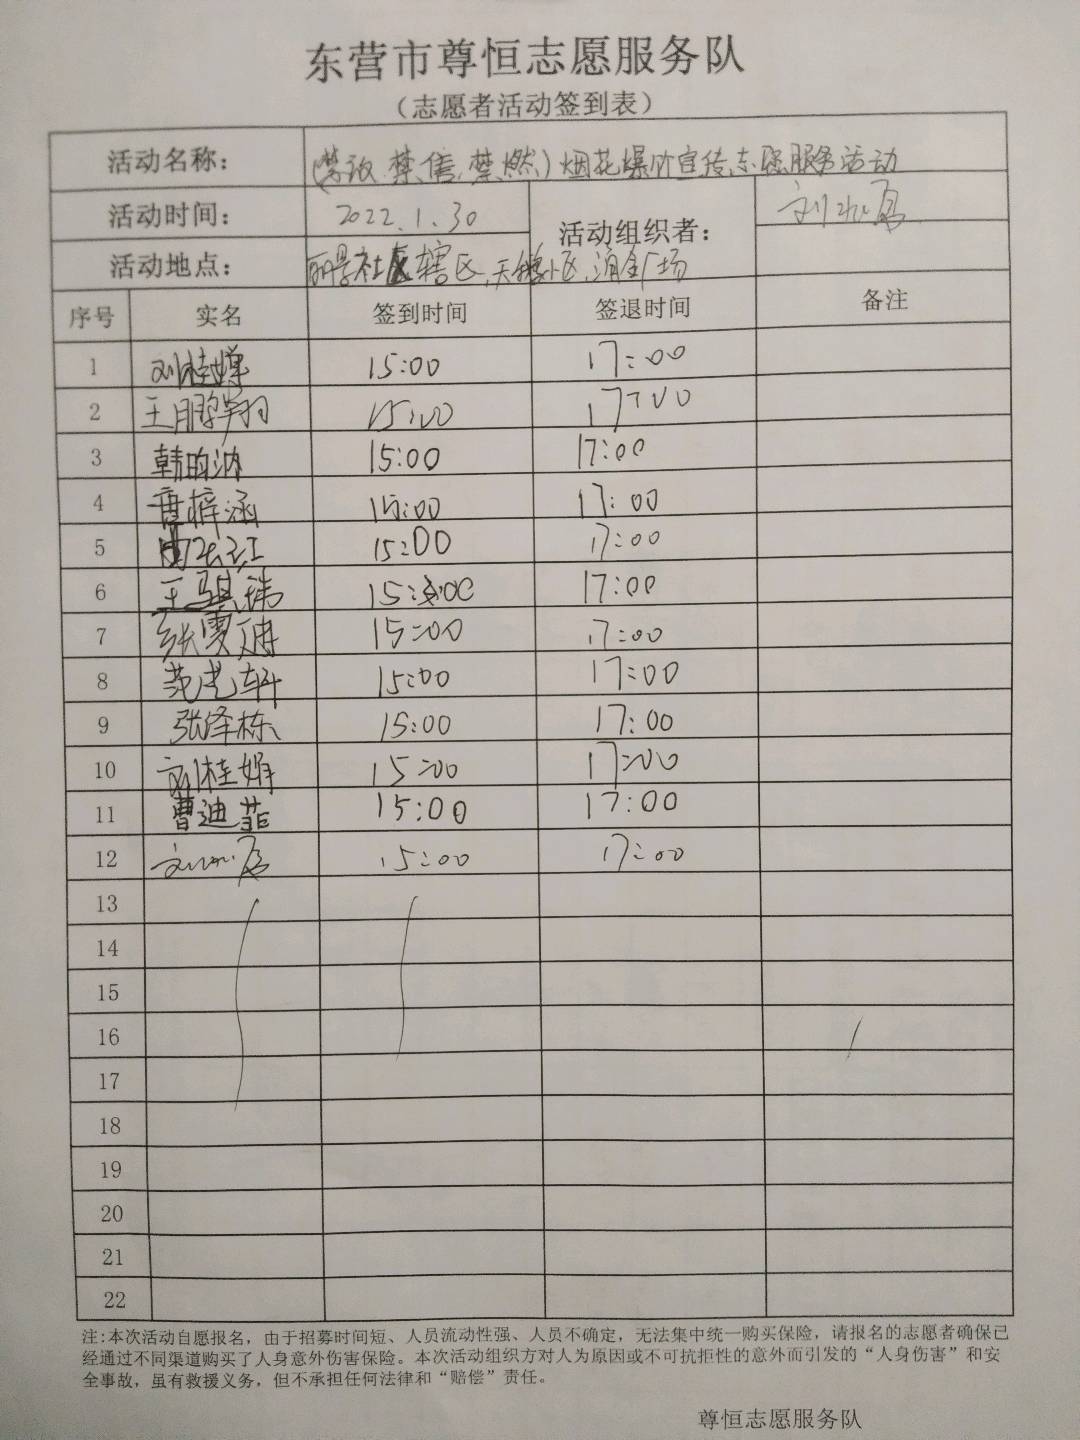 东营市尊恒志愿服务队
（志愿者活动签到表）
活动名称： （禁放、禁售、禁燃）烟花爆竹宣传志愿服务活动
活动时间： 2022.1.30 活动组织者： 刘
活动地点： 丽景社区辖区、小区、广场
序号 实名 签到时间 签退时间 备注
1 刘桂婵 15:00 17:00
2 王鹏翔 15:00 17:00
3 韩昀汭 15:00 17:00
4 唐梓涵 15:00 17:00
5 江 15:00 17:00
6 王骐瑞 15:00 17:00
7 张雯 15:00 17:00
8 范轩 15:00 17:00
9 张泽栋 15:00 17:00
10 刘桂娟 15:00 17:00
11 曹迪菲 15:00 17:00
12 刘 15:00 17:00
13
14
15
16
17
18
19
20
21
22
注：本次活动自愿报名，由于招募时间短、人员流动性强、人员不确定，无法集中统一购买保险，请报名的志愿者确保已
经通过不同渠道购买了人身意外伤害保险。本次活动组织方对人为原因或不可抗拒性的意外而引发的“人身伤害”和安
全事故，虽有救援义务，但不承担任何法律和“赔偿”责任。
尊恒志愿服务队